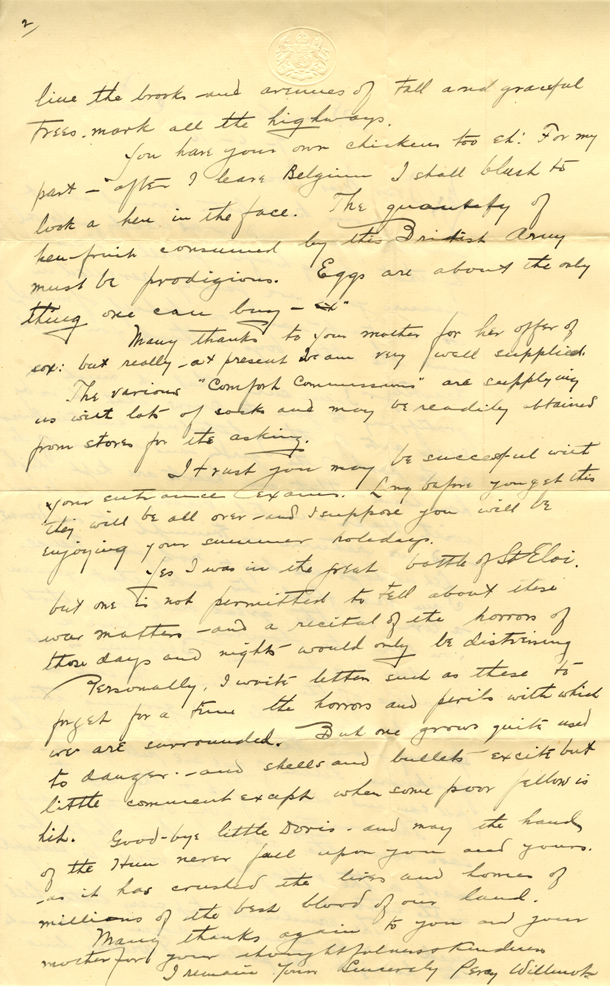 2/
line the brooks and avenues of tall and graceful
trees mark all the highways.
You have your own chickens too eh! For my
part – after I leave Belgium I shall blush to
look a hen in the face. The quantity of
hen-fruit consumed by this British Army
must be prodigious. Eggs are about the only
thing one can buy –
Many thanks to your mother for her offer of
sox: but really – at present I am very well supplied.
The various "Comfort Commissions" are supplying
us with lots of socks and may be readily obtained
from stores for the asking.
I trust you may be successful with
your entrance exams. Long before you get this
they will be all over – and I suppose you will be
enjoying your summer holidays.
Yes I was in the great battle of St Eloi.
but one is not permitted to tell about these
war matters – and a recital of the horrors of
those days and nights would only be distressing
Personally, I write letters such as these to
forget for a time the horrors and perils with which
we are surrounded. But one grows quite used
to danger – and shells and bullets excite but
little comment except when some poor fellow is
hit. Good-bye little Doris – and may the hand
of the Hun never fall upon you and yours.
– as it has crushed the lives and homes of
millions of the best blood of our land.
Many thanks again to you and your
mother for your thoughtfulness & kindness
I remain Yours Sincerely Percy Willmot